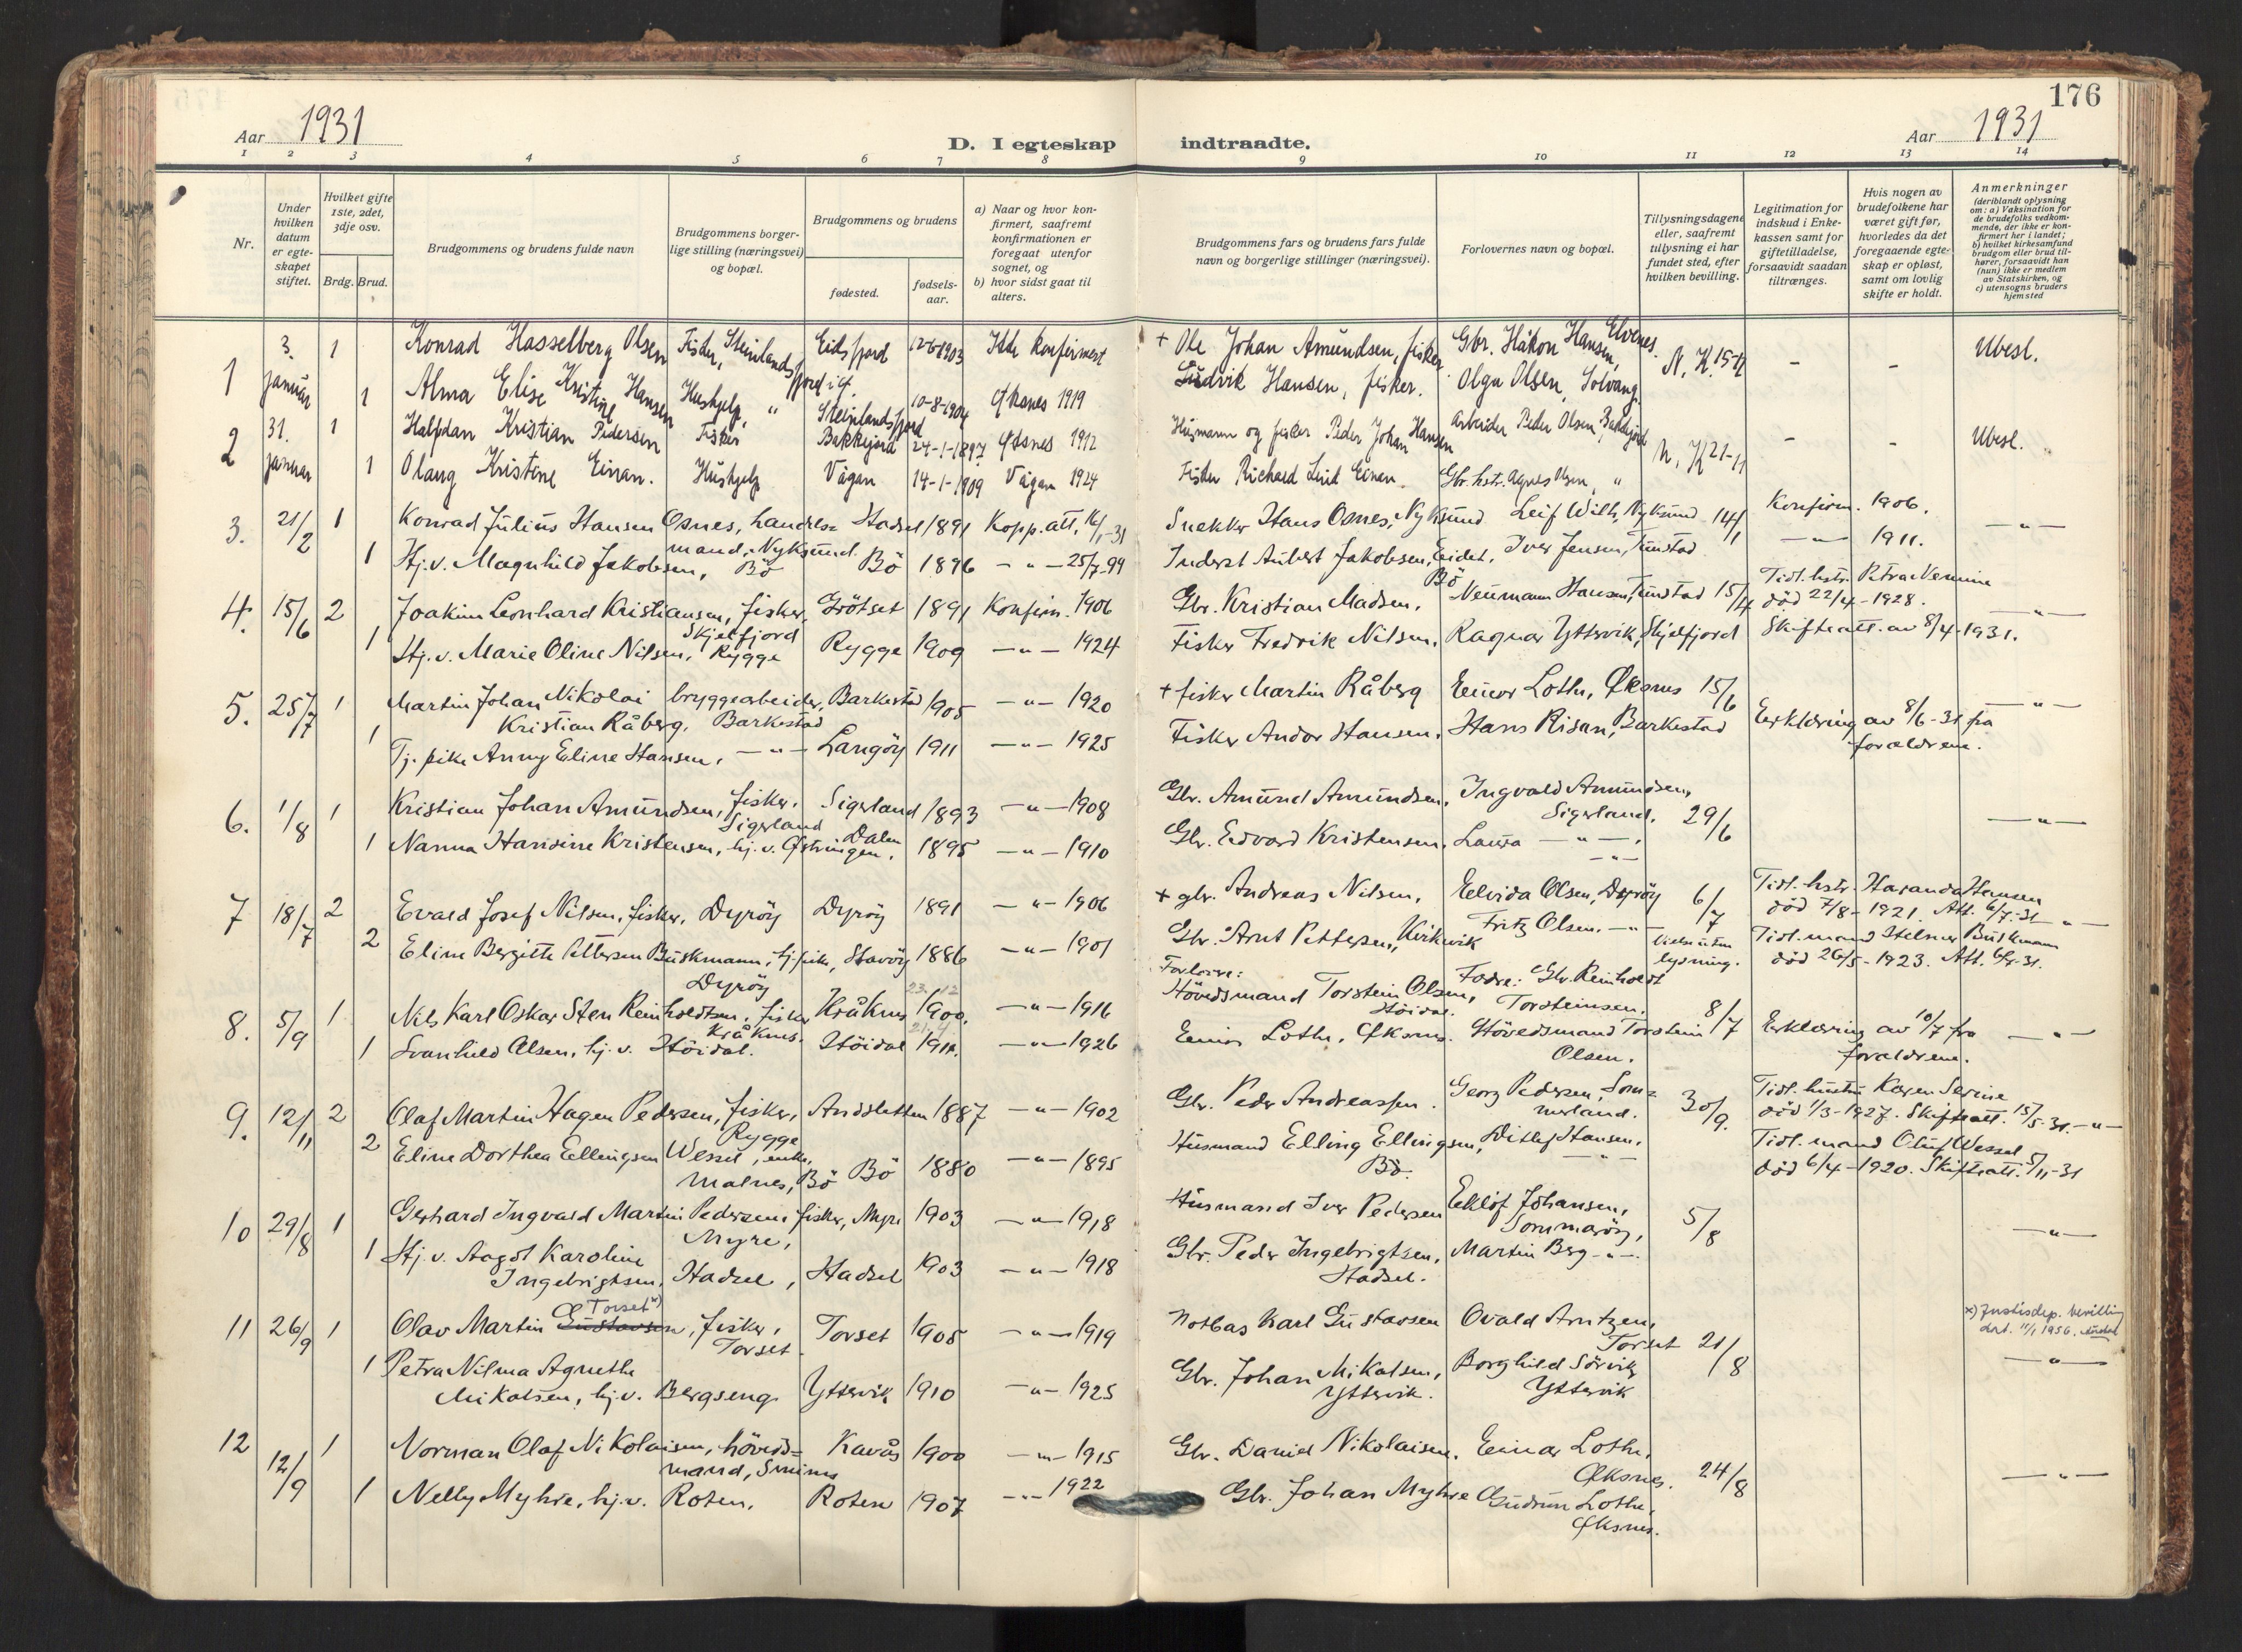 176
Aar 1931
D. I egteskap indtraadte.
Aar 1931
1 2 3 4 5 6 7 8 9 10 11 12 13 14
Nr.
Under hvilken datum er egteskapet stiftet.
Hvilket gifte 1ste, 2det, 3dje osv.
Brdg. Brud.
Brudgommens og brudens fulde navn
Brudgommens borgerlige stilling (næringsvei) og bopæl.
Brudgommens og brudens
fødested.
fødselsaar.
a) Naar og hvor konfirmert, saafremt konfirmationen er foregaat utenfor sognet, og
b) hvor sidst gaat til alters.
Brudgommens fars og brudens fars fulde navn og borgerlige stillinger (næringsvei).
Forlovernes navn og bopæl.
Tillysningsdagene eller, saafremt tillysning ei har fundet sted, efter hvilken bevilling.
Legitimation for indskud i Enkekassen samt for giftetilladelse, forsaavidt saadan tiltrænges.
Hvis nogen av brudefolkene har været gift før, hvorledes da det foregaaende egteskap er opløst, samt om lovlig skifte er holdt.
Anmerkninger (deriblandt oplysning om: a) Vaksination for de brudefolks vedkommende, der ikke er konfirmert her i landet; b) hvilket kirkesamfund brudgom eller brud tilhører, forsaavidt han (hun) ikke er medlem av Statskirken, og c) utensogns bruders hjemsted
1 3. januar 1 Konrad Hasselberg Olsen Fisker, Steinlandsfjord i Ø. Eidsfjord 12-6-1903 Ikke konfirmert + Ole Johan Amundsen, fisker Gbr. Håkon Hansen, Elvenes. N. K. 15-11 - - Ubesl.
1 Alma Elise Kristine Hansen Hushjelp, " Steinlandsfjord 10-8-1904 Øksnes 1919 Ludvik Hansen, fisker. Olga Olsen, Solvang.
2 31. januar 1 Halfdan Kristian Pedersen Fisker Bakkejord 24-1-1897 Øksnes 1912 Husmann og fisker Peder Johan Hansen Arbeider Peder Olsen, Bakkejord N. K 21-11 - - Ubesl.
1 Olaug Kristine Einan. Hushjelp Vågan 14-1-1909 Vågan 1924 Fisker Richard Einan. Gbr. hstr. Agnes Olsen "
3. 21/2 1 Konrad Julius Hansen Osnes, handels= Hadsel 1891 Kopp. att. 16/1-31 Snekker Hans Osnes, Nyksund Leif Wilh, Nyksund 14/1 Konfirm. 1906. -"-
mand, Nyksund.
1 Hj.v. Magnhild Jakobsen, Bö Bö 1896 -"- 25/7-99 Inderst Aubert Jakobsen, Eidet, Bö Iver Jensen, Tunstad -"- 1911.
4. 15/6 2 Joakim Leonhard Kristiansen, fisker, Skjelfjord Grötset 1891 Konfirm. 1906 Gbr. Kristian Madsen. Neumann Hansen, Tunstad 15/4 Tidl. hstr. Petra Nermine
død 22/4-1928. -"-
1 Hj.v. Marie Oline Nilsen, Rygge Rygge 1909 -"- 1924 Fisker Fredrik Nilsen. Ragnar Yttervik, Skjelfjord Skifteatt. av 8/4-1931.
5. 25/7 1 Martin Johan Nikolai bryggearbeider, Barkestad 1905 -"- 1920 + fisker Martin Råberg Einar Lothe, Øksnes 15/6 -"-
Kristian Råberg, Barkestad
1 Tj.pike Anny Eline Hansen, -"- Langöy 1911 -"- 1925 Fisker Andor Hansen. Hans Risan, Barkestad Erklæring av 8/6-31 fra
forældrene.
6. 1/8 1 Kristian Johan Amundsen, fisker, Sigerland Sigerland 1893 -"- 1908 Gbr. Amund Amundsen. Ingvald Amundsen, Sigerland. 29/6 -"-
1 Nanna Hansine Kristensen, hj.v. Östringen. Dalen 1895 -"- 1910 Gbr. Edvard Kristensen. Laura -"-, -"-
7 18/7 2 Evald Josef Nilsen, fisker, Dyröy Dyröy 1891 -"- 1906 + gbr. Andreas Nilsen. Elvida Olsen, Dyröy 6/7 Tidl. hstr. Haranda Hansen
død 7/8-1921. Att. 6/7-31 -"-
2 Eline Bergitte Pettersen Buskmann, tj.pike, Stavöy 1886 -"- 1901 Gbr. Arnt Pettersen, Kirkevik Fritz Olsen. -"- Vielse uten lysning. Tidl. mand Hilmer Buskmann
Dyröy død 26/5-1923. Att. 6/7-31.
Forlovere: Fædre: Gbr. Reinholdt
8. 5/9 1 Nils Karl Oskar Sten Reinholdtsen, fisker Kråknes. Kråknes 23.12 1900. -"- 1916 Hövedsmand Torstein Olsen, Höidal. Torsteinsen. 8/7
1 Svanhild Olsen, hj.v. Höidal. Höidal 1911. -"- 1926 Einar Lothe. Øksnes. Hövedsmand Torstein Olsen. Erklæring av 10/7 fra
forældrene. -"-
9. 12/11 2 Olaf Martin Hagen Pedersen, fisker, Rygge Andsletten 1887 -"- 1902 Gbr. Peder Andreassen. Georg Pedersen, Som=merland. 30/9. Tidl. hustru Karen Serine
død 1/3-1927. Skifteatt. 15/5-31. -"-
2 Eline Dorthea Ellingsen Wessel, enke, Malnes, Bö Bö 1880 -"- 1895 Husmand Elling Ellingsen, Bö. Ditlef Hansen. -"- Tidl. mand Oluf Wessel
død 6/4-1920. Skifteatt. 5/11-31
10 29/8 1 Gerhard Ingvald Martin Pedersen, fisker, Myre, Myre 1903 -"- 1918 Husmand Iver Pedersen Eeklöf Johansen, Sommaröy, 5/8 -"-
1 Hj.v. Aagot Karoline
Ingebrigtsen, Hadsel, Hadsel 1903 -"- 1918 Gbr. Peder Ingebrigtsen, Hadsel. Martin Berg -"-.
11 26/9 1 Olav Martin Gustavsen Torset x), fisker, Torset. Torset 1905 -"- 1919 Notbas Karl Gustavsen Ovald Arntzen, Torset 21/8 x) Justisdep. bevilling
dat. 11/1 1956.
-"-
1 Petra Nilma Agnethe
Mikalsen, hj.v. Bergseng Yttervik 1910 -"- 1925 Gbr. Johan Mikalsen, Yttervik. Borghild Sörvik Yttervik
12 12/9 1 Norman Olaf Nikolaisen, höveds=mand, Smines Kavås 1900 -"- 1915 Gbr. Daniel Nikolaisen. Einar Lothe, Øksnes. 24/8 -"-
1 Nelly Myhre, hj.v. Roten, Roten 1907 -"- 1922 Gbr. Johan Myhre Gudrun Lothe, Øksnes.